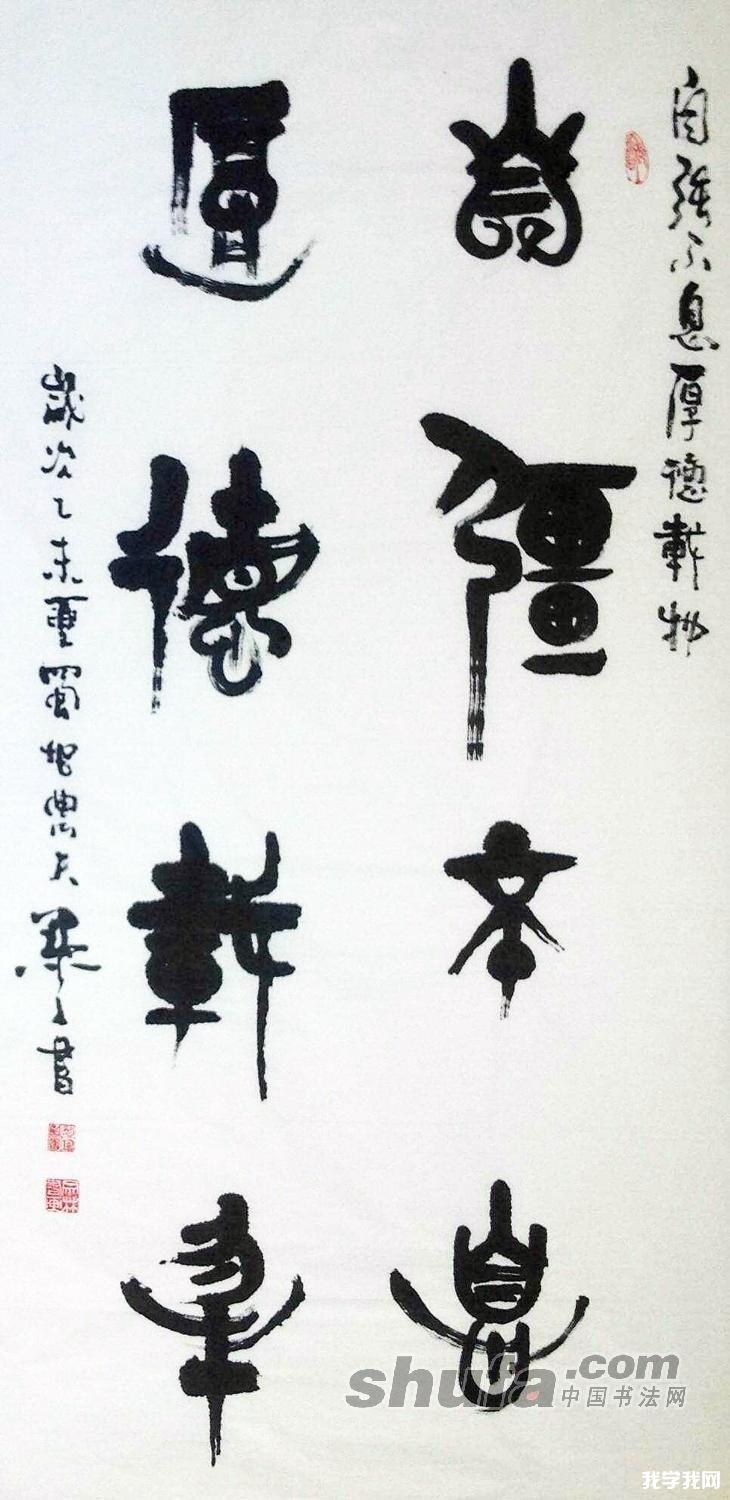 自强不息厚德载物
自彊不息
厚德載物
歲次乙未
書
shufa.com
中国书法网
我学我网